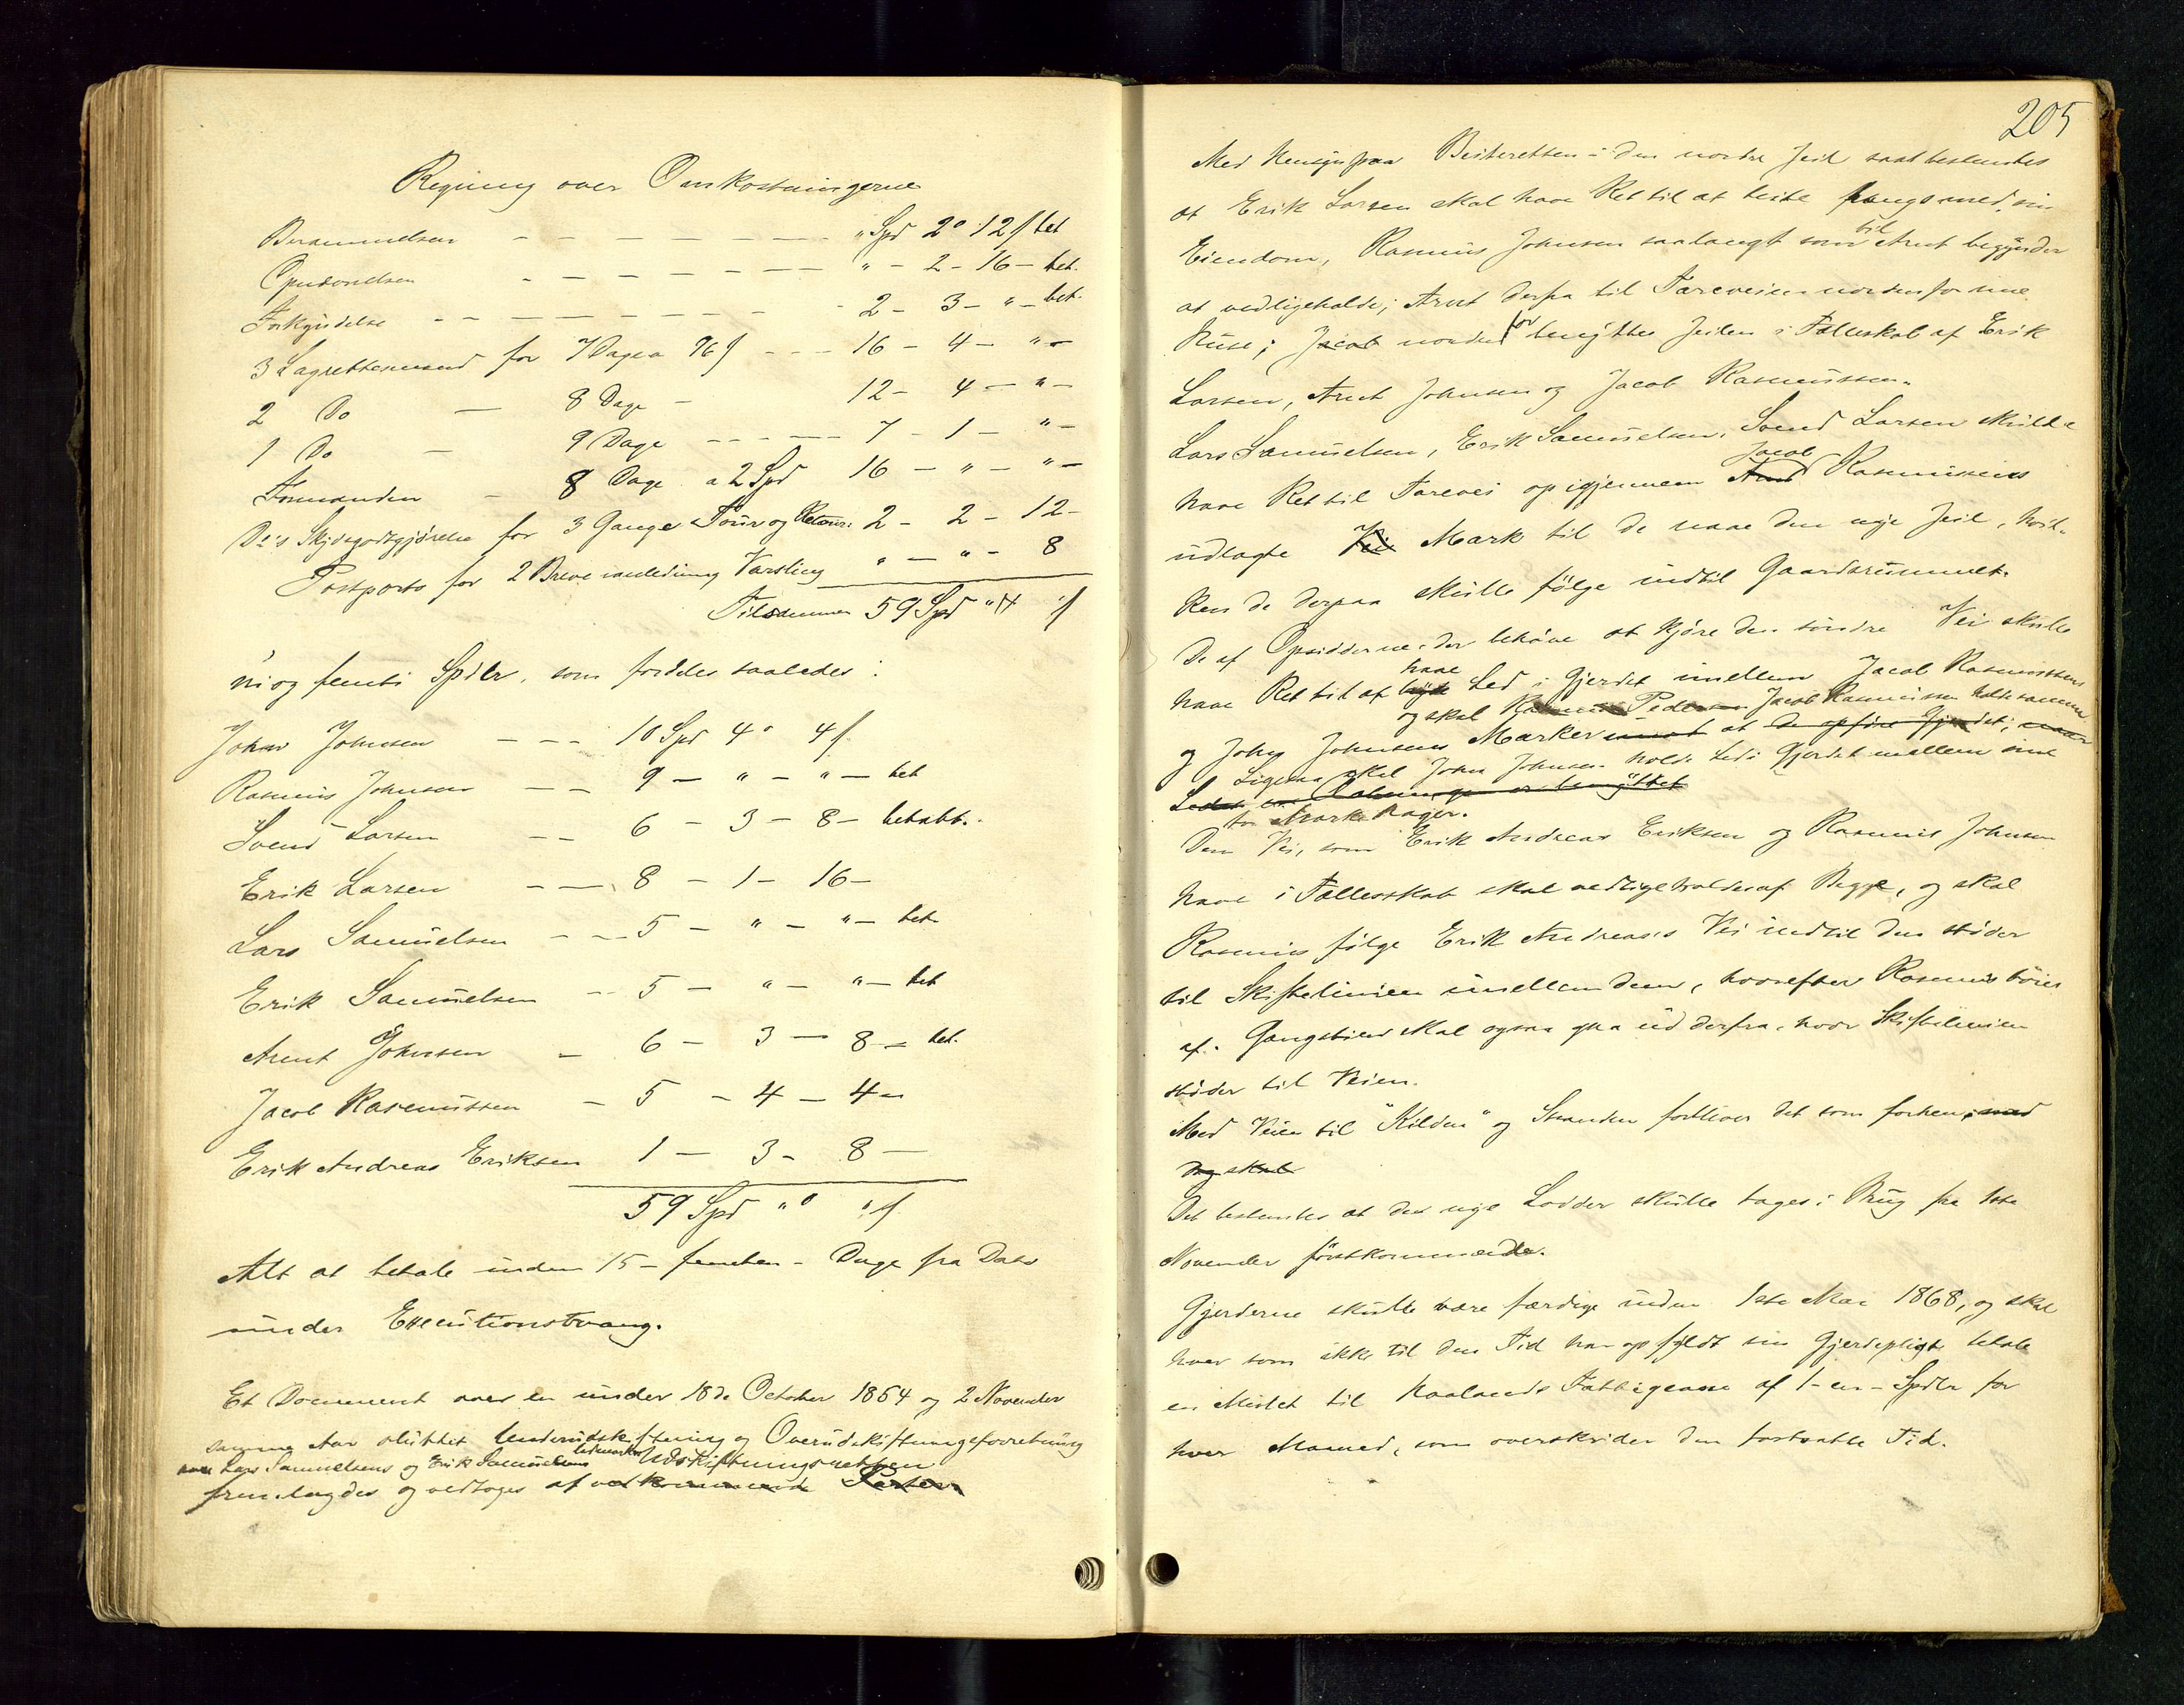 Regning over Omkostningerne
Berammelsen - - - - - - - " Spd 2 º 12 ſ bet
Opnævnelsen - - - - - - - " - 2 - 16 - bet.
Forkyndelse - - - - - - - 2 - 3 - " - bet.
3 Lagrettemænd for 7 Dage a 96 ſ - - - 16 - 4 - " -
2 Do - 8 Dage - 12 - 4 - " -
1 Do - 9 Dage - - - - - 7 - 1 - " -
Formanden - 8 Dage a 2 Spd 16 - " - " -
Do's Skydsgodtgjørelse for 3 Gange Tour og Retour: 2 - 2 - 12 -
Postporto for 2 Breve Varsling " - " - 8
Tilsammen 59 Spd " º " ſ
ni og femti Spdlr, som fordeles saaledes:
John Johnsen - - - 10 Spd 4 º 4 ſ
Rasmus Johnsen - - 9 - " - " - bet
Svend Larsen - - 6 - 3 - 8 - betalt.
Erik Larsen - - 8 - 1 - 16 -
Lars Samuelsen - - 5 - " - " - bet
Erik Samuelsen - 5 - " - " - bet
Arent Johnsen - 6 - 3 - 8 - bet.
Jacob Rasmussen - 5 - 4 - 4 -
Erik Andreas Eriksen 1 - 3 - 8 -
59 Spd " º " ſ
Alt at betale inden 15 - femten - Dage fra Dato
under Executionstvang.
Et Document over en under 18de October 1854 og 2 November
samme Aar sluttet Underudskiftning og Overudskiftningsforretning
over Lars Samuelsens og Erik Samuelsens Udskiftningsretten
fremlagdes og vedtoges af vedkommende Parter
205
Med Hensyn paa Beiteretten i den nordre Jeil bestemtes
at Erik Larsen skal have Ret til at beite langs med sin
Eiendom, Rasmus Johnsen saalangt som til Arnt begynder
at vedligeholde; Arnt derfra til Færeveien nordenfor sine
Huse; Jacob norden for benyttes Jeilen i Fælleskab af Erik
Larsen, Arnt Johnsen og Jacob Rasmussen.
Lars Samuelsen, Erik Samuelsen, Svend Larsen skulde
have Ret til Færevei op igjennem Arnt Jacob Rasmussens
udlagte Vei Mark til de naae den nye Jeil, hvil-
ken de derpaa skulle følge indtil Gaardsrummet.
De af Opsidderne der behøve at kjøre den søndre Vei skulle
have Ret til at have Led i Gjerdet imellem Jacob Rasmussens
og skal Rasmus Pedersen Jacob Rasmussen holde samme
og John Johnsens Marker imod at de opføre Gjerdet; naar
Ligesaa skal John Johnsen holde Led i Gjerdet mellem sine
Ledet er benyttet
to Mark Hager.
Den Vei, som Erik Andreas Eriksen og Rasmus Johnsen
have i Fællesskab skal vedligeholdes af Begge, og skal
Rasmus følge Erik Andreas's Vei indtil den støder
til Skiftelinien imellem dem, hvorefter Rasmus bøier
af. Gangstien skal ogsaa gaa ud derfra, hvor Skiftelinien
støder til Veien.
Med Veien til "Kilden" og Stranden forbliver det som forhen, med
og skal
Det bestemtes at de nye Lodder skulle tages i Brug fra 1ste
November førstkommende.
Gjerderne skulle være færdige inden 1ste Mai 1868, og skal
hver som ikke til den Tid har opfyldt sin Gjerdepligt betale
en Mulct til Haalands Fattigcasse af 1 - en - Spdlr for
hver Maaned, som overskrider den fastsatte Tid.